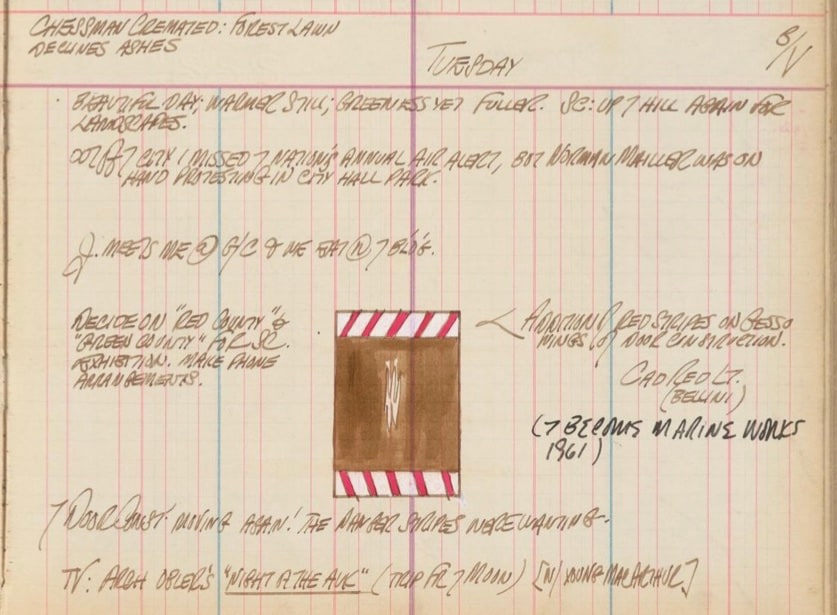 CHESSMAN CREMATED: FOREST LAWN
DECLINES ASHES
TUESDAY
3/V
BEAUTIFUL DAY; WARMER STILL; GREENNESS YET FULLER. SC: UP 7 HILL AGAIN FOR
LANDSCAPES.
OUT OF 7 CITY I MISSED 7 NATION'S ANNUAL AIR ALERT, BUT NORMAN MAILLER WAS ON
HAND PROTESTING IN CITY HALL PARK.
J. MEETS ME @ G/C & WE EAT @ 7 BLDG.
DECIDE ON "RED COUNTY" &
"GREEN COUNTY" FOR SC.
EXHIBITION. MAKE PHONE
ARRANGEMENTS.
ADDITION OF RED STRIPES ON GESSO
WINGS OF DOOR CONSTRUCTION.
CAD RED LT.
(BELLINI)
(7 BECOMS MARINE WORKS
1961)
7 DOOR CONST. MOVING AGAIN! THE DANGER STRIPES WERE WANTING.
TV: ARCH OBLER'S "NIGHT OF THE AUK" (TRIP FR 7 MOON) [W/ YOUNG MACARTHUR]